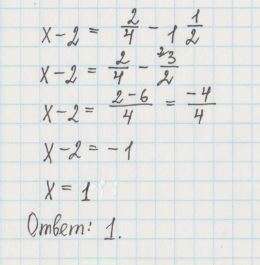 x-2 = 2/4 - 1 1/2
x-2 = 2/4 - ²3/2
x-2 = 2-6/4 = -4/4
x-2 = -1
x = 1
Ответ: 1.